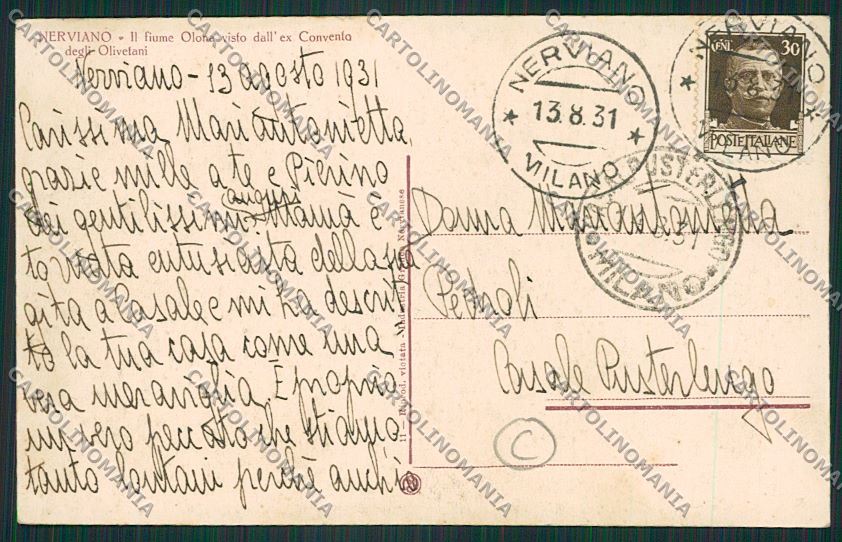 NERVIANO - Il fiume Olona visto dall' ex Convento
degli Olivetani
Nerviano - 13 agosto 1931
Carissima Mariantonietta,
grazie mille a te e Pierino
dei gentilissimi auguri. Mamà è
tornata entusiasta della sua
gita a Casale e mi ha descrit
to la tua casa come una
vera meraviglia. È proprio
un vero peccato che stiamo
tanto lontani perchè anch'
11 - Riprod. vietata - Industria Nervianese
NERVIANO
13.8.31
MILANO
NERVIANO
13.8.31
MILANO
CENT. 30
POSTE ITALIANE
PUSTERLENGO
MILANO
Donna Mariantonietta
Pedroli
Casale Pusterlengo
C
CARTOLINOMANIA